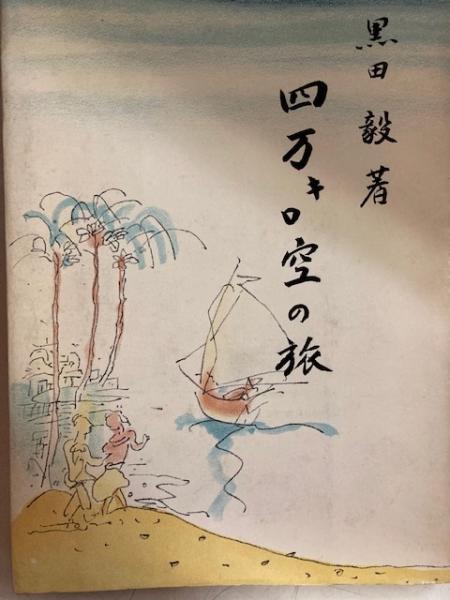 黒田毅著
四万キロ空の旅